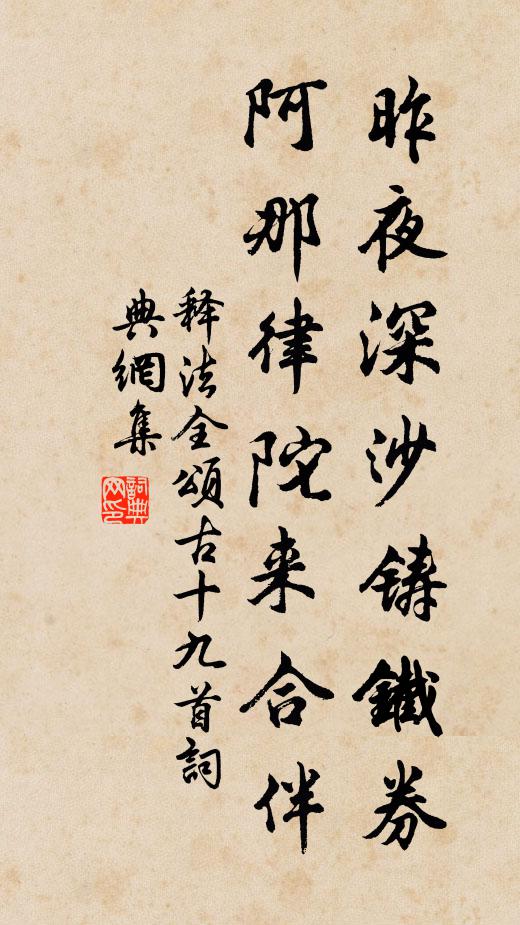 昨夜深沙铸鐡券
阿那律陀来合伴
释法全頌古十九首詞
典網集
詞典网印